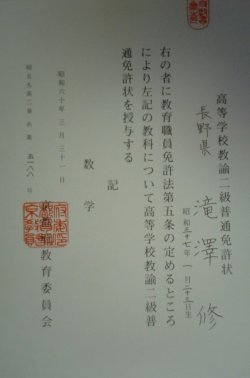 高等学校教諭二級普通免許状
長野県
滝澤 修
昭和三十七年一月二十三生
右の者に教育職員免許法第五条の定めるところ
により左記の教科について高等学校教諭二級普
通免許状を授与する
記
数学
昭和六十年三月三十一日
教育委員会